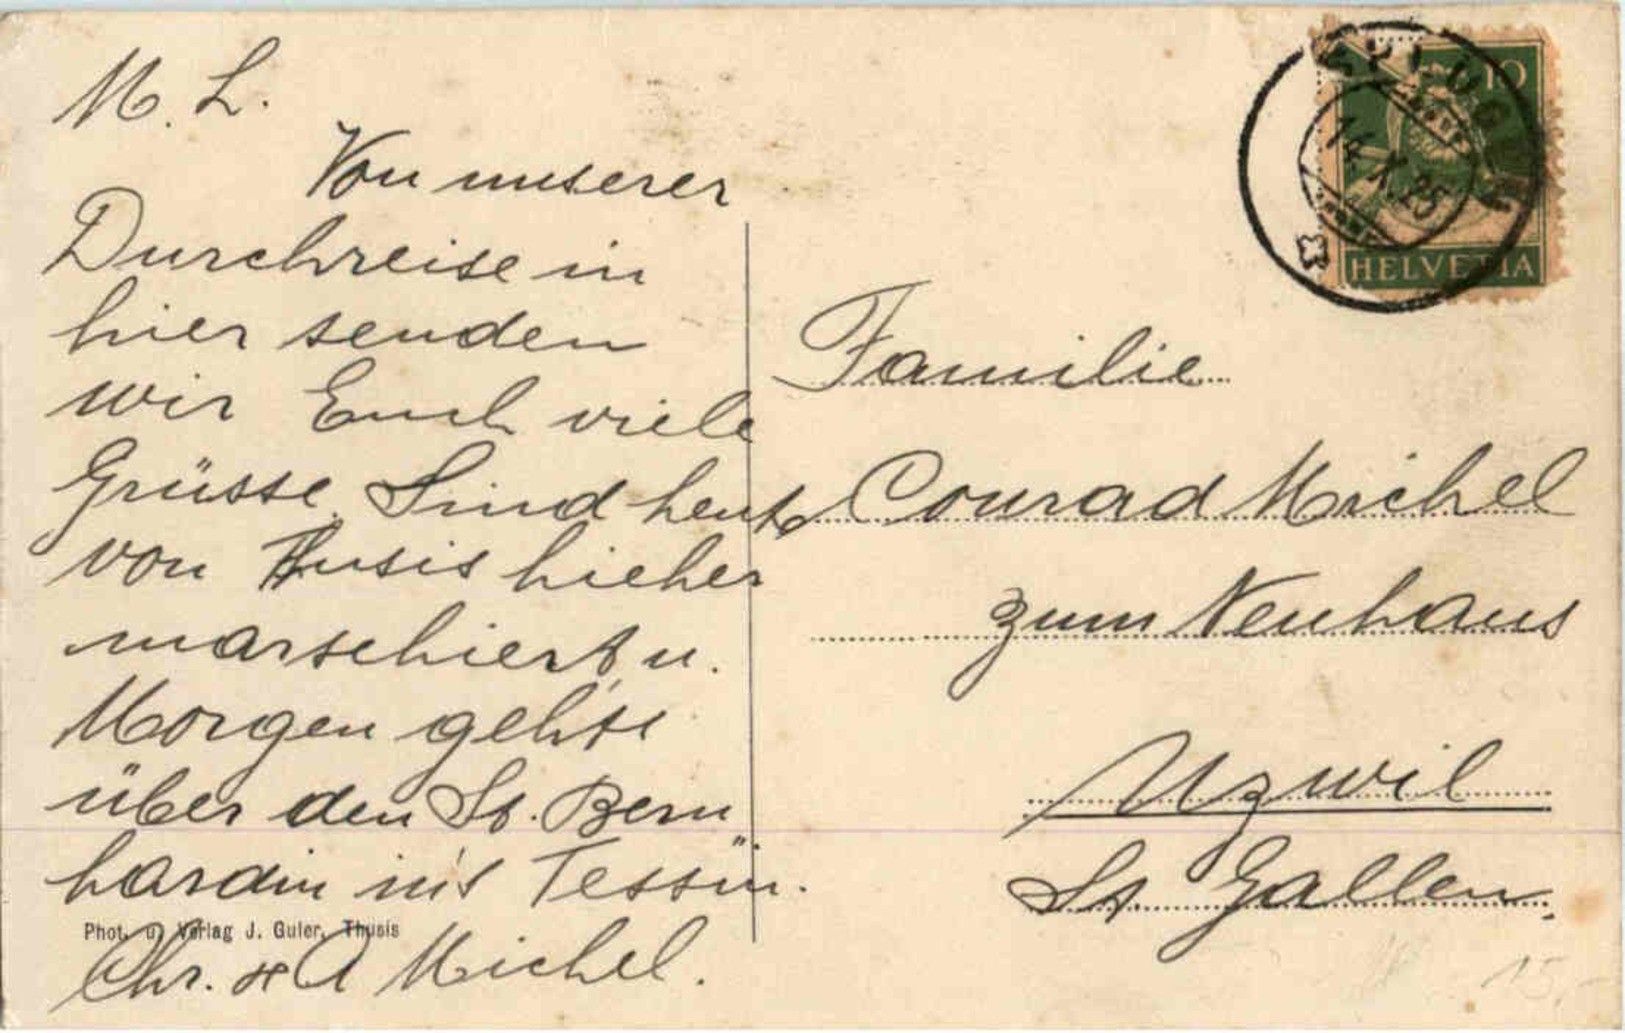 M. L.
Von unserer
Durchreise in
hier senden
wir Euch viele
Grüsse. Sind heute
von Thusis hieher
marschiert u.
Morgen gehts
über den St. Bern
hardin in's Tessin.
Chr. & A Michel.
Phot. u. Verlag J. Guler, Thusis
10
HELVETIA
SPLÜGEN
14.X.25
Familie
Conrad Michel
zum Neuhaus
Uzwil
St. Gallen.
15.-